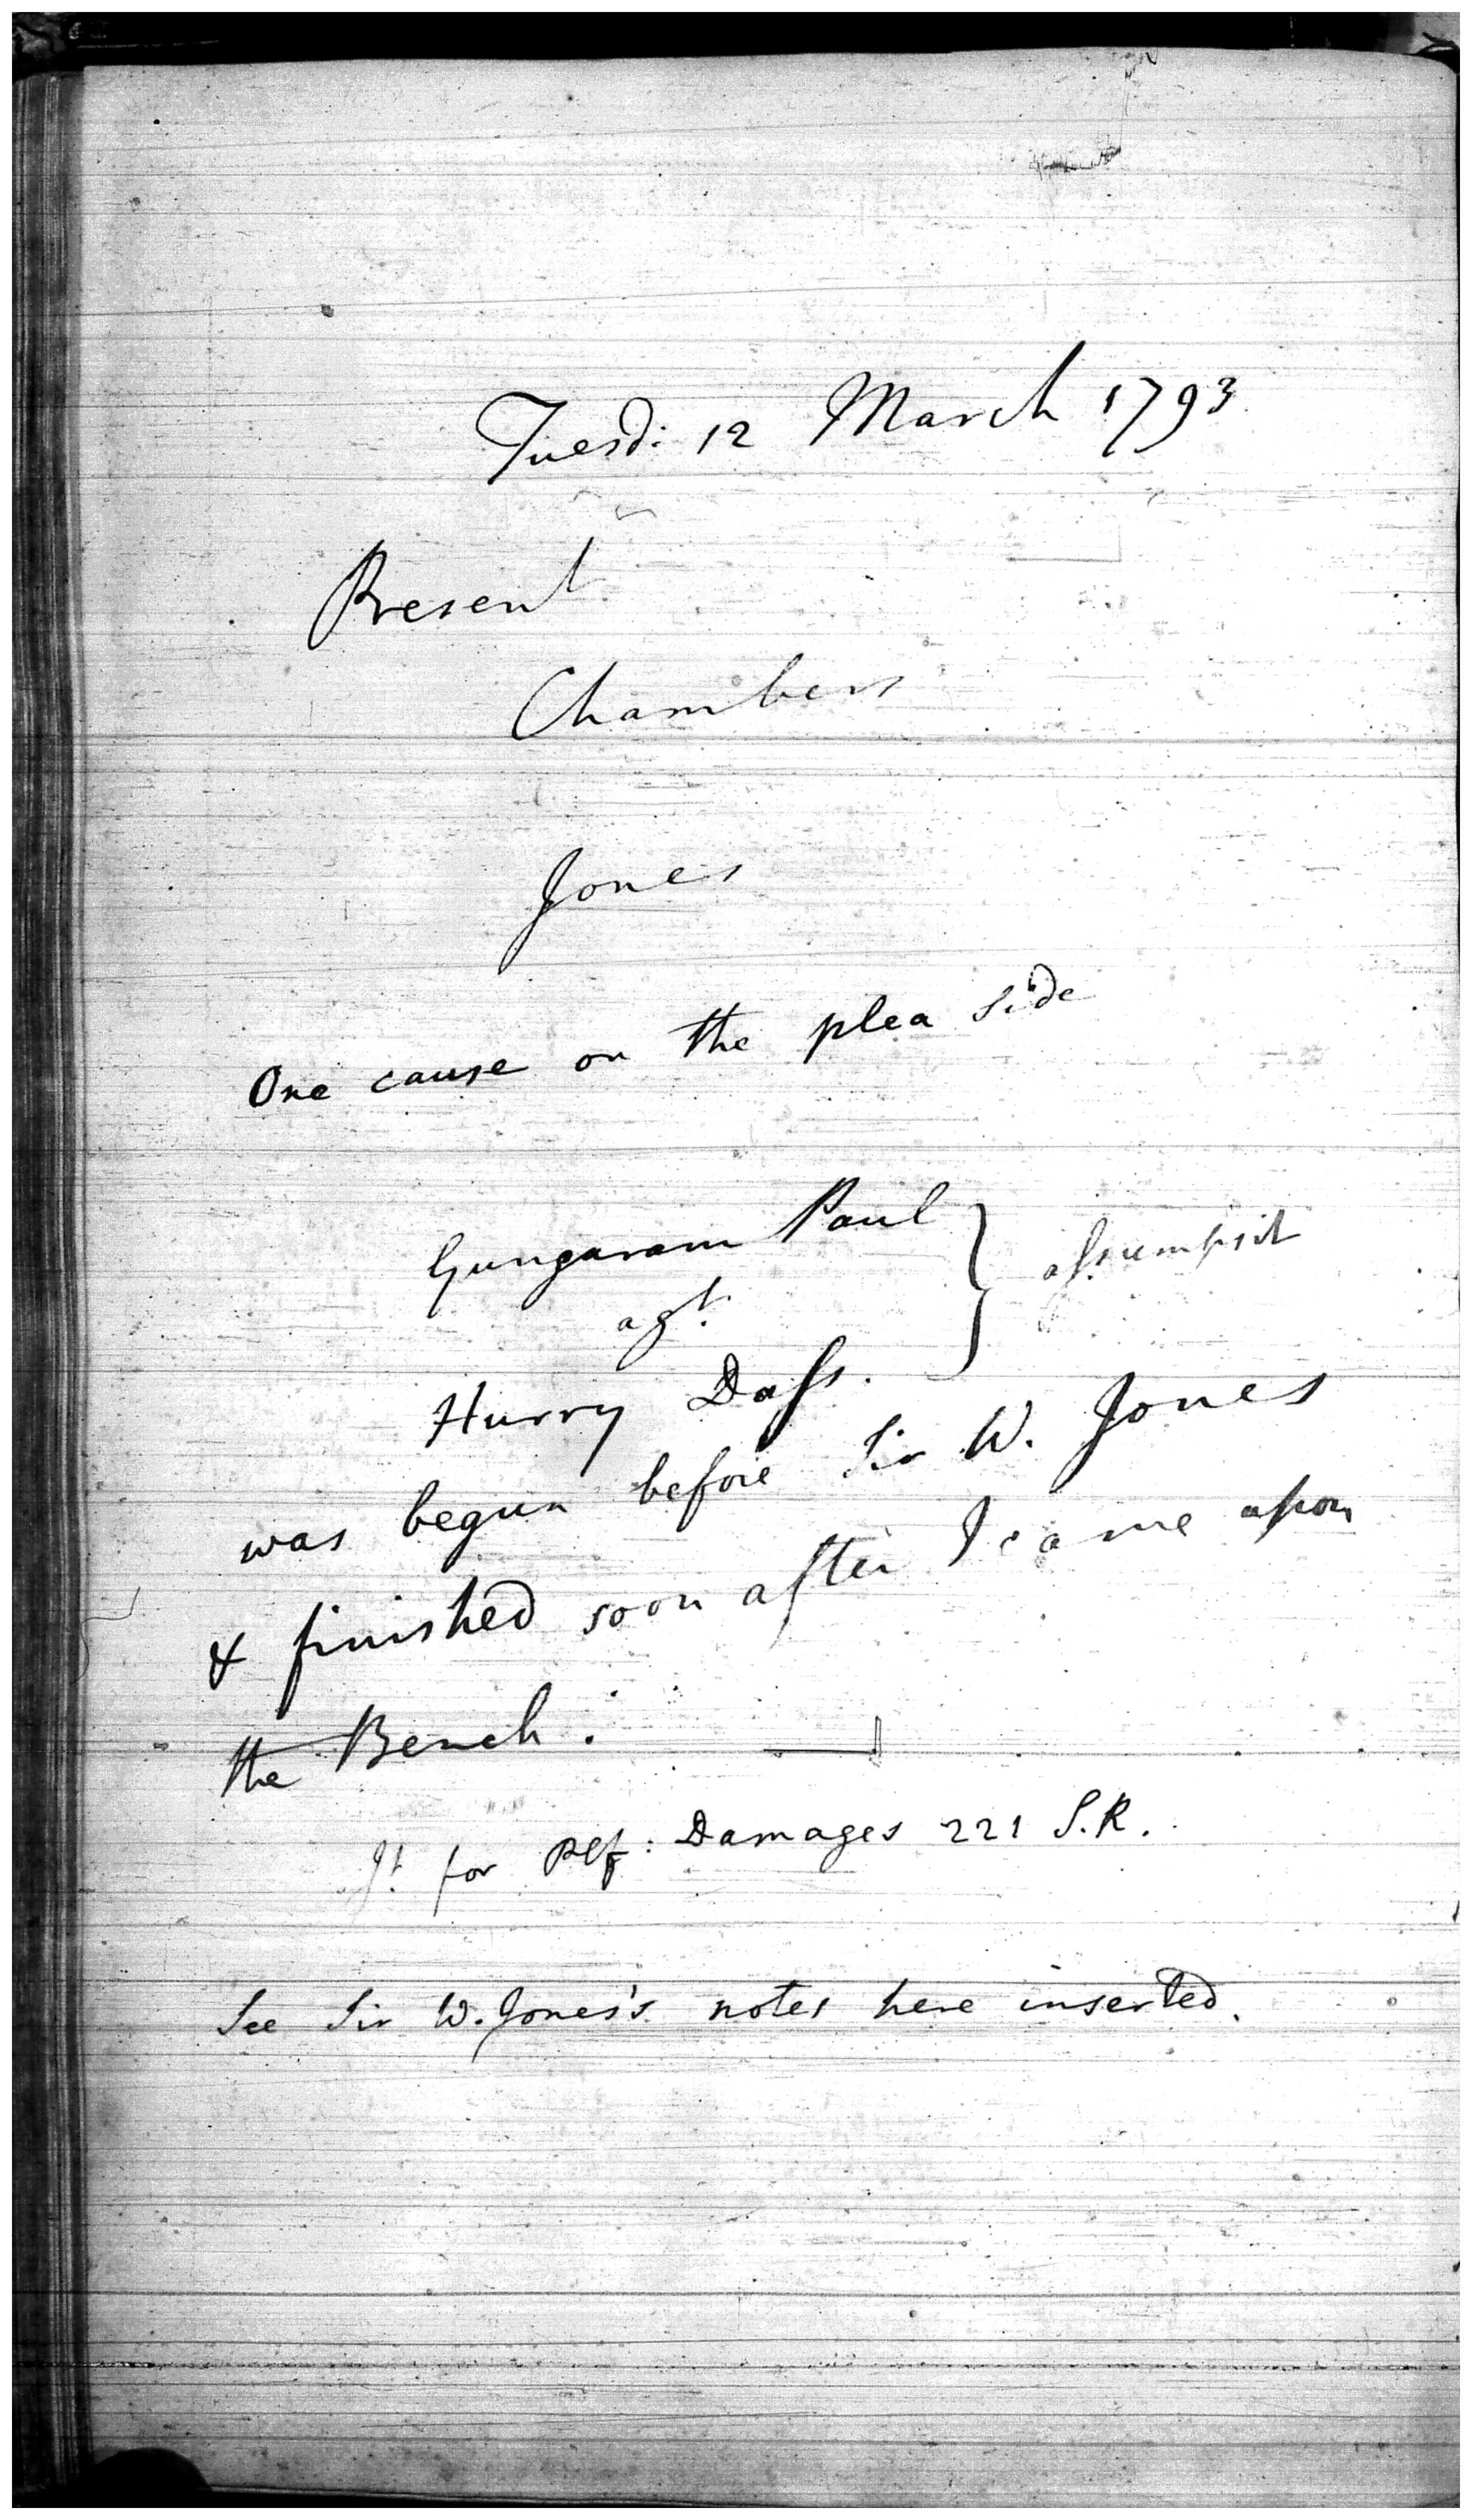 Tuesd: 12 March 1793
Present
Chambers
Jones
One cause on the plea side
Gungaram Paul } aſsumpsit
agt.
Hurry Daſs.
was begun before Sir W. Jones
& finished soon after I came upon
the Bench.
Jt. for Plf: Damages 221 S.R.
See Sir W. Jones's notes here inserted.